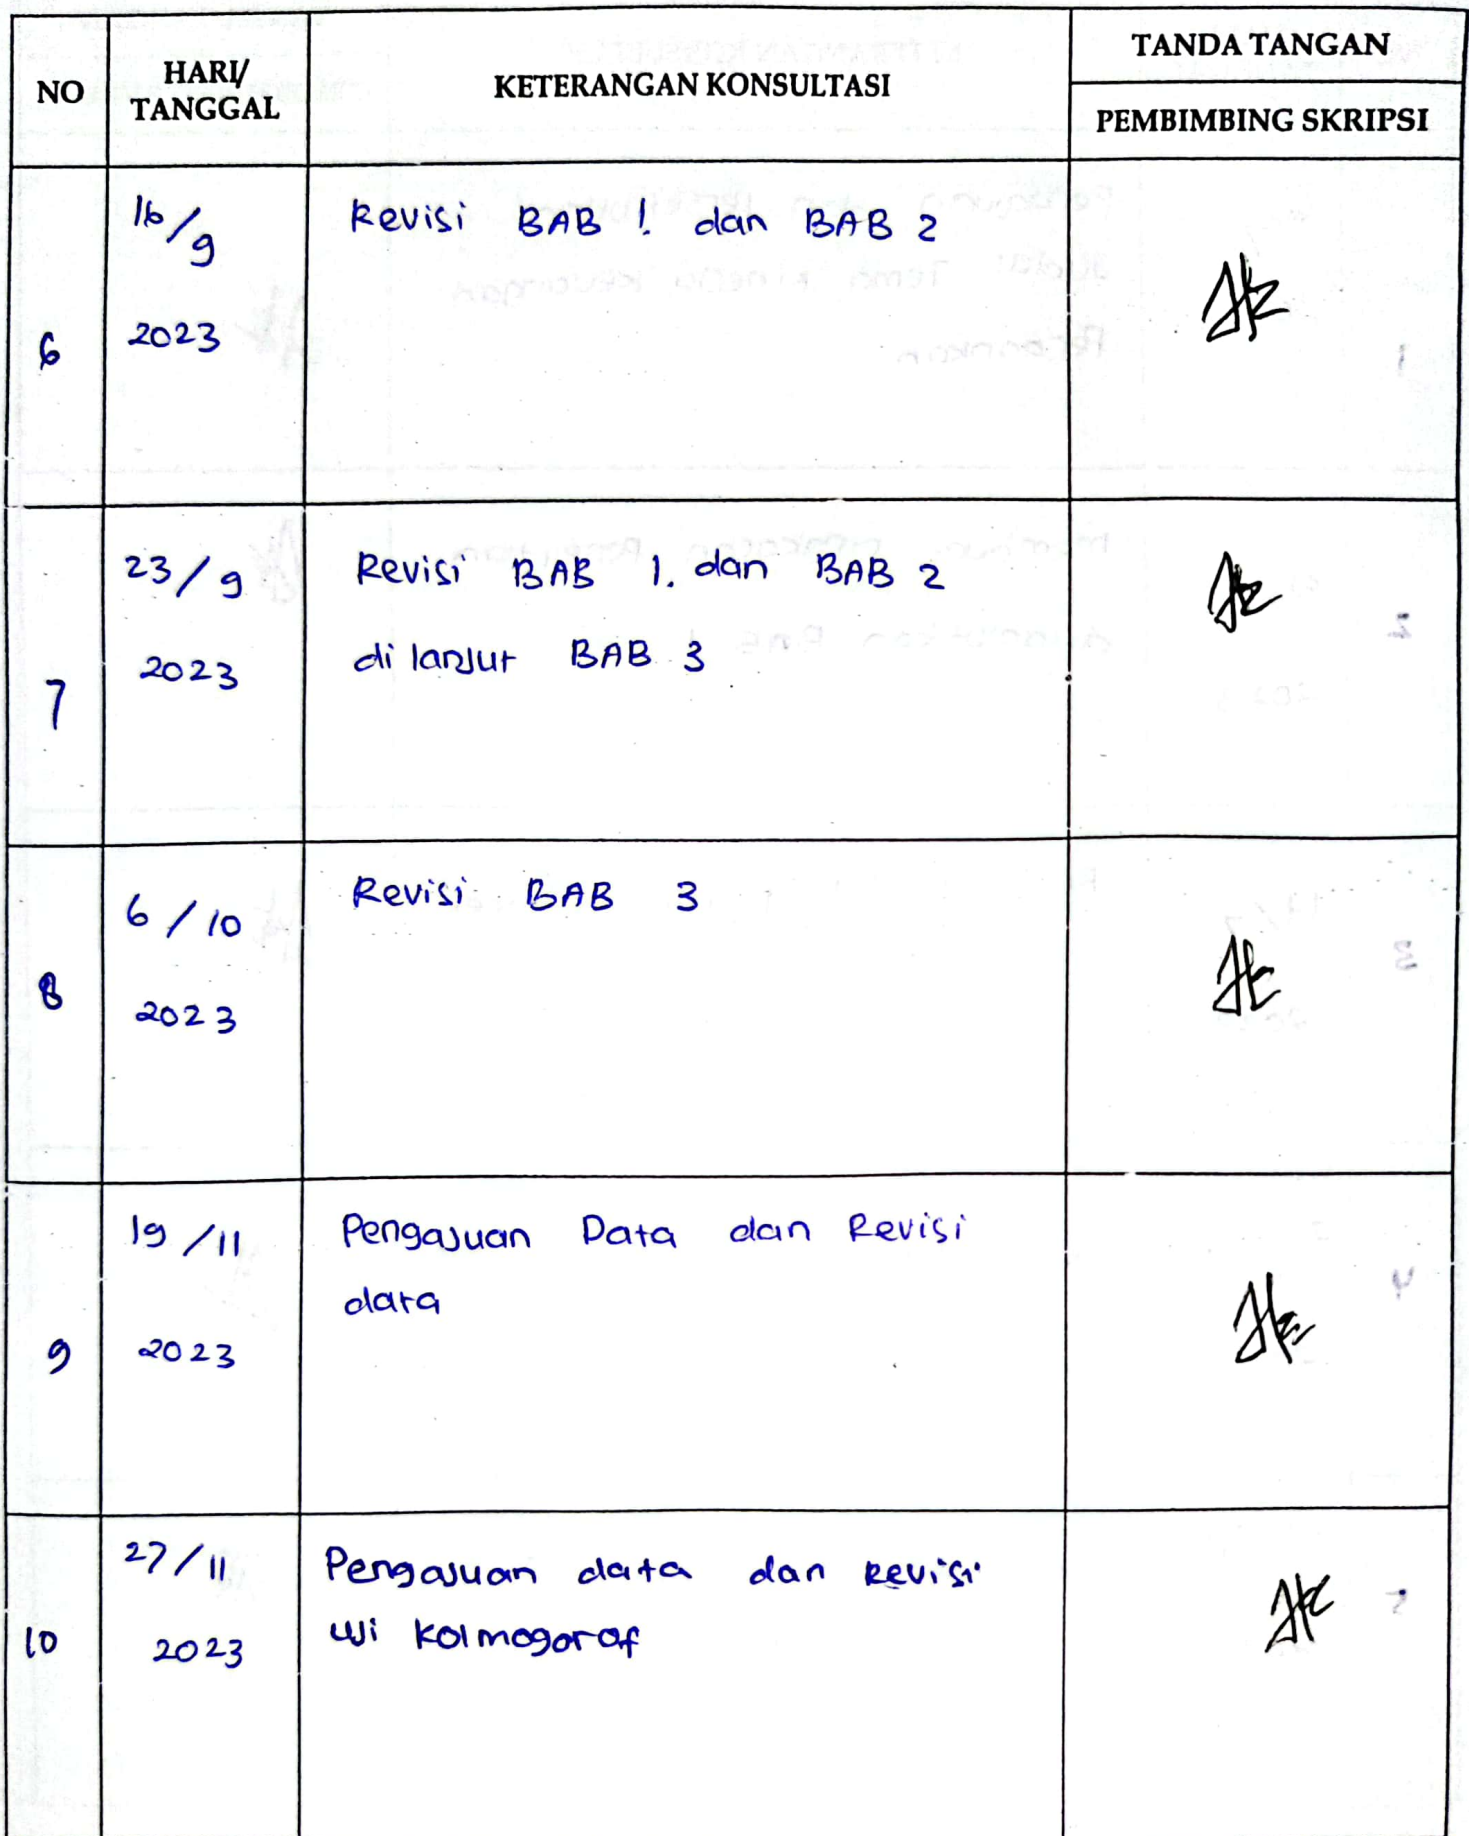 NO
HARI/
TANGGAL
KETERANGAN KONSULTASI
TANDA TANGAN
PEMBIMBING SKRIPSI
6
16/9
2023
Revisi BAB 1. dan BAB 2
7
23/9
2023
Revisi BAB 1. dan BAB 2
di lanjut BAB 3
8
6/10
2023
Revisi BAB 3
9
19/11
2023
Pengajuan Data dan Revisi
data
10
27/11
2023
Pengajuan data dan Revisi
Uji Kolmogoraf